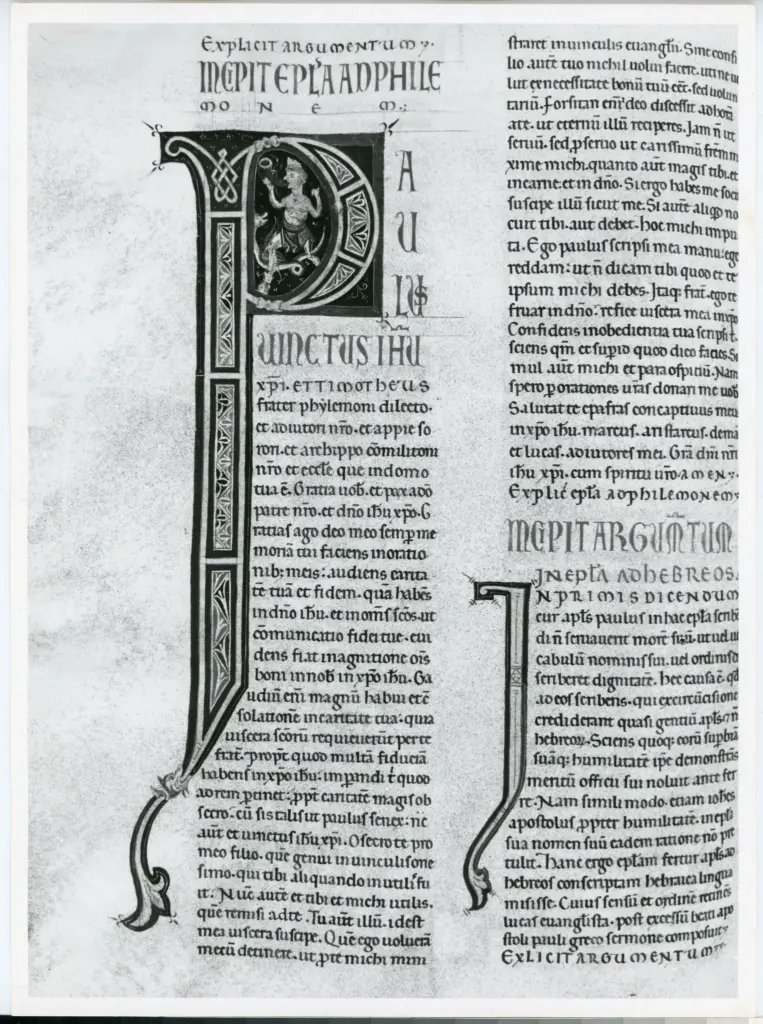 EXPLICIT ARGUMENTUM
INCIPIT EPL̃A AD PHILE
MONEM
PAULUS
UINCTUS IHU
xp̃i. ET TIMOTHEUS
frater phylemoni dilecto.
et adiutori nr̃o. et appie so
rori. et archippo cõmilitoni
nr̃o et eccłe que in domo
tua ẽ. Gratia uob̃. et pax a dõ
patre nr̃o. et dño ihũ xp̃o. G
ratias ago deo meo semper me
moriã tui faciens in oratio
nib; meis: audiens carita
tẽ tuã et fidem. quã habẽs
in dño ihũ. et in om̃s sc̃os. ut
cõmunicatio fidei tue. eui
dens fiat in agnitione oĩs
boni in nob̃ in xp̃o ihũ. Ga
udiũ em̃ magnũ habui et cõ
solationẽ in caritate tua: quia
uiscera sc̃orũ requieuerũt per te
frat̃. propt̃ quod multã fiduciã
habens in xp̃o ihũ: imperandi t̃ quod
ad rem pertinet: ppt̃ caritatẽ magis ob
secro. cũ sis talis ut paulus senex: nc̃
aut̃ et uinctus ihũ xp̃i. Obsecro te pro
meo filio. quẽ genui in uinculis one
simo. qui tibi aliquando inutilis fu
it. Nũc aut̃ et tibi et michi utilis.
quẽ remisi ad te. Tu aut̃ illũ. id est
mea uiscera suscipe. Quẽ ego uoluerã
mecũ detinere. ut p̱ te michi mini
straret in uinculis euangl̃ii. Sine consi
lio aut̃ tuo michil uolui facere. uti ne ue
lut ex necessitate bonũ tuũ eẽt. sed uolun
tariũ. Forsitan em̃ ideo discessit ad horã
a te. ut eternũ illũ reciperes. Jam ñ ut
seruũ. sed p̱ seruo ut carissimũ fr̃em m
xime michi. quanto aut̃ magis tibi. et
in carne. et in dño. Si ergo habes me soci
suscipe illũ sicut me. Si aut̃ aliq̃d no
cuit tibi. aut debet. hoc michi impu
ta. Ego paulus scripsi mea manu: ego
reddam: ut ñ dicam tibi quod et te
ipsum michi debes. Itaq; frat̃. ego te
fruar in dño: refice uiscera mea in xp̃o
Confidens in obedientia tua scripsi t̃.
sciens qm̃ et sup̱ id quod dico facies. Si
mul aut̃ michi et para ospitiũ. Nam
spero p̱ orationes ur̃as donari me uob̃
Salutat te epafras concaptiuus meus
in xp̃o ihũ. marcus. aristarcus. demã
et lucas. adiutores mei. Grã dñi nr̃i
ihũ xp̃i. cum spiritu ur̃o. AMEN.
Explic̃ epl̃a ad philemonem
INCIPIT ARGUM̃TUM
IN EPL̃A AD HEBREOS.
IN PRIMIS DICENDUM
cur apl̃s paulus in hac epl̃a scribẽ
di ñ seruauerit morẽ suũ. ut uel uo
cabulũ nominis sui. uel ordinis d
scriberet dignitatẽ. Hec causa ẽ. qd̃
ad eos scribens. qui ex circũcisione
crediderant quasi gentiũ apl̃s & ñ
hebreoꝝ. Sciens quoq; eorũ sup̱biã
suãq; humilitatẽ ip̃e demonstrãs
meritũ officii sui noluit ante fer
re. Nam simili modo. etiam ioh̃es
apostolus p̱pter humilitatẽ. in epl̃a
sua nomen suũ eadem ratione nõ pre
tulit. Hanc ergo epl̃am fertur apl̃s ad
hebreos conscriptam hebraica lingua
misisse. Cuius sensũ et ordinẽ retinẽs
lucas euanglista. post excessũ beati apo
stoli pauli greco sermone composuit
EXLICIT ARGUMENTUM